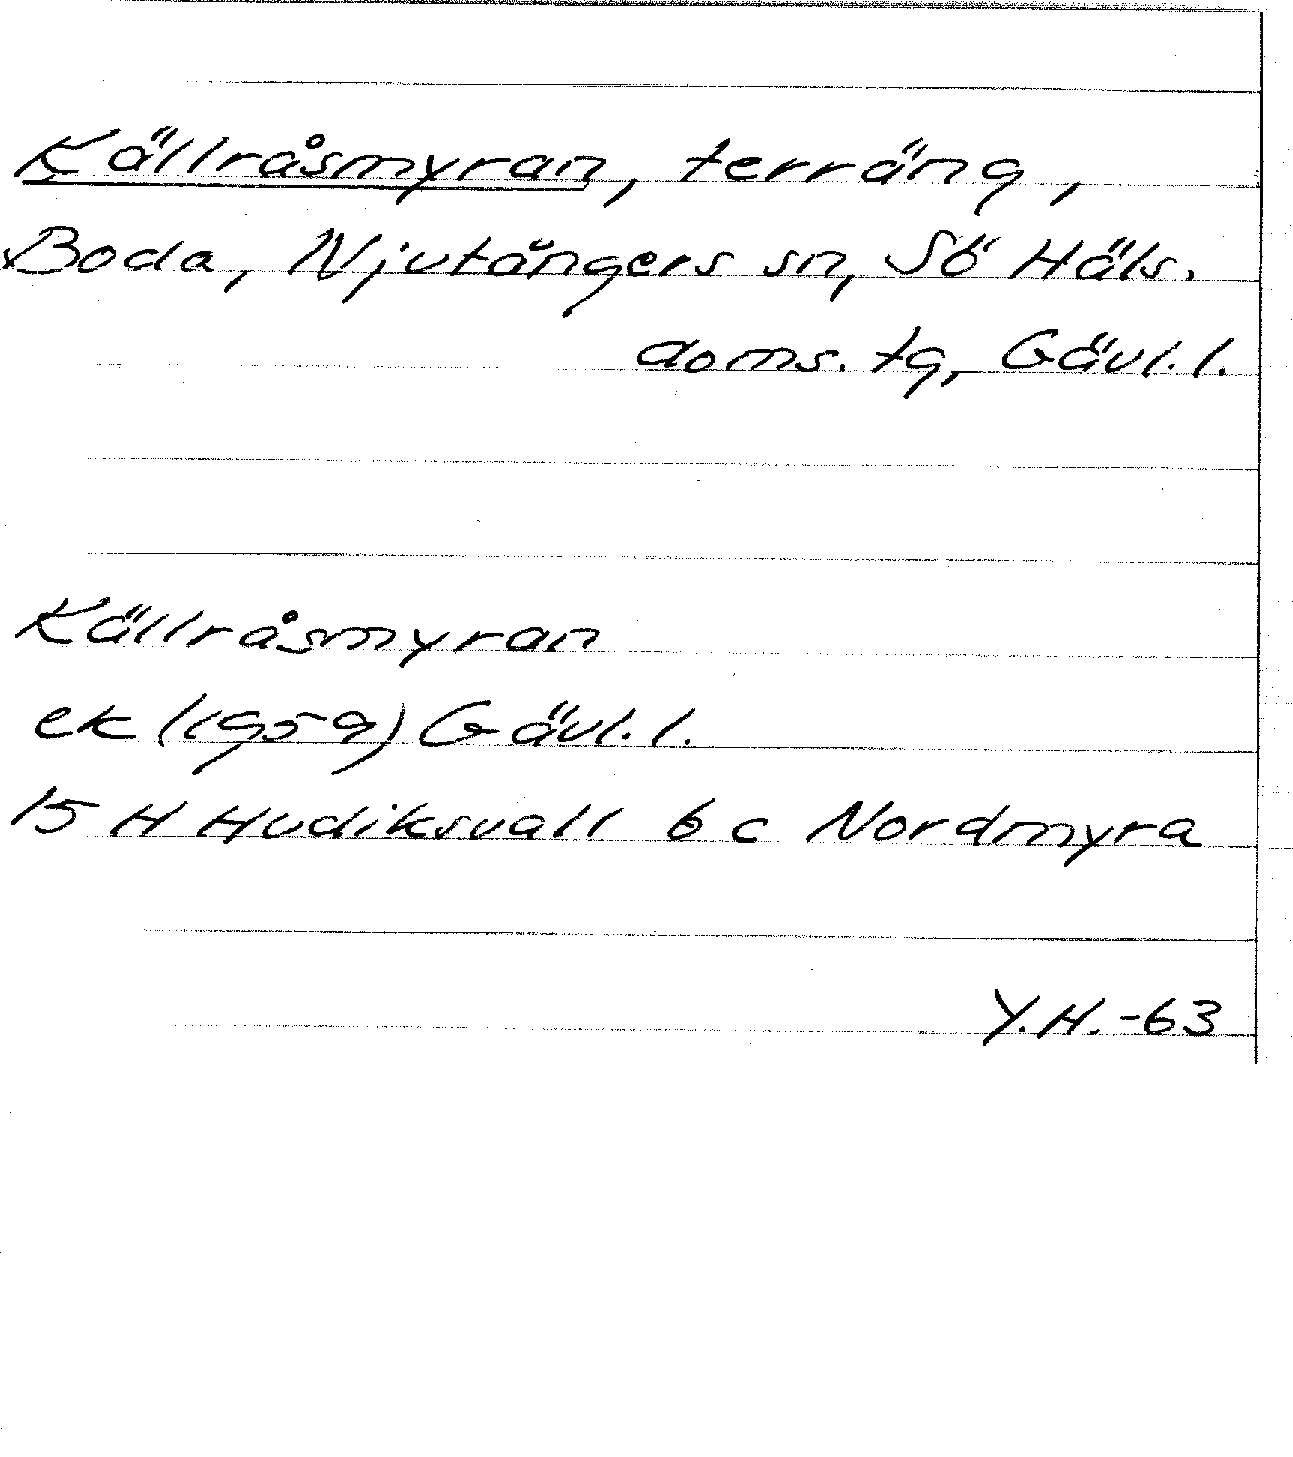 Källråsmyran, terräng,
Boda, Njutångers sn, Sö Häls.
doms. tg, Gävl. l.
Källråsmyran
ek (1959) Gävl. l.
15 H Hudiksvall 6 c Nordmyra
Y.H. -63